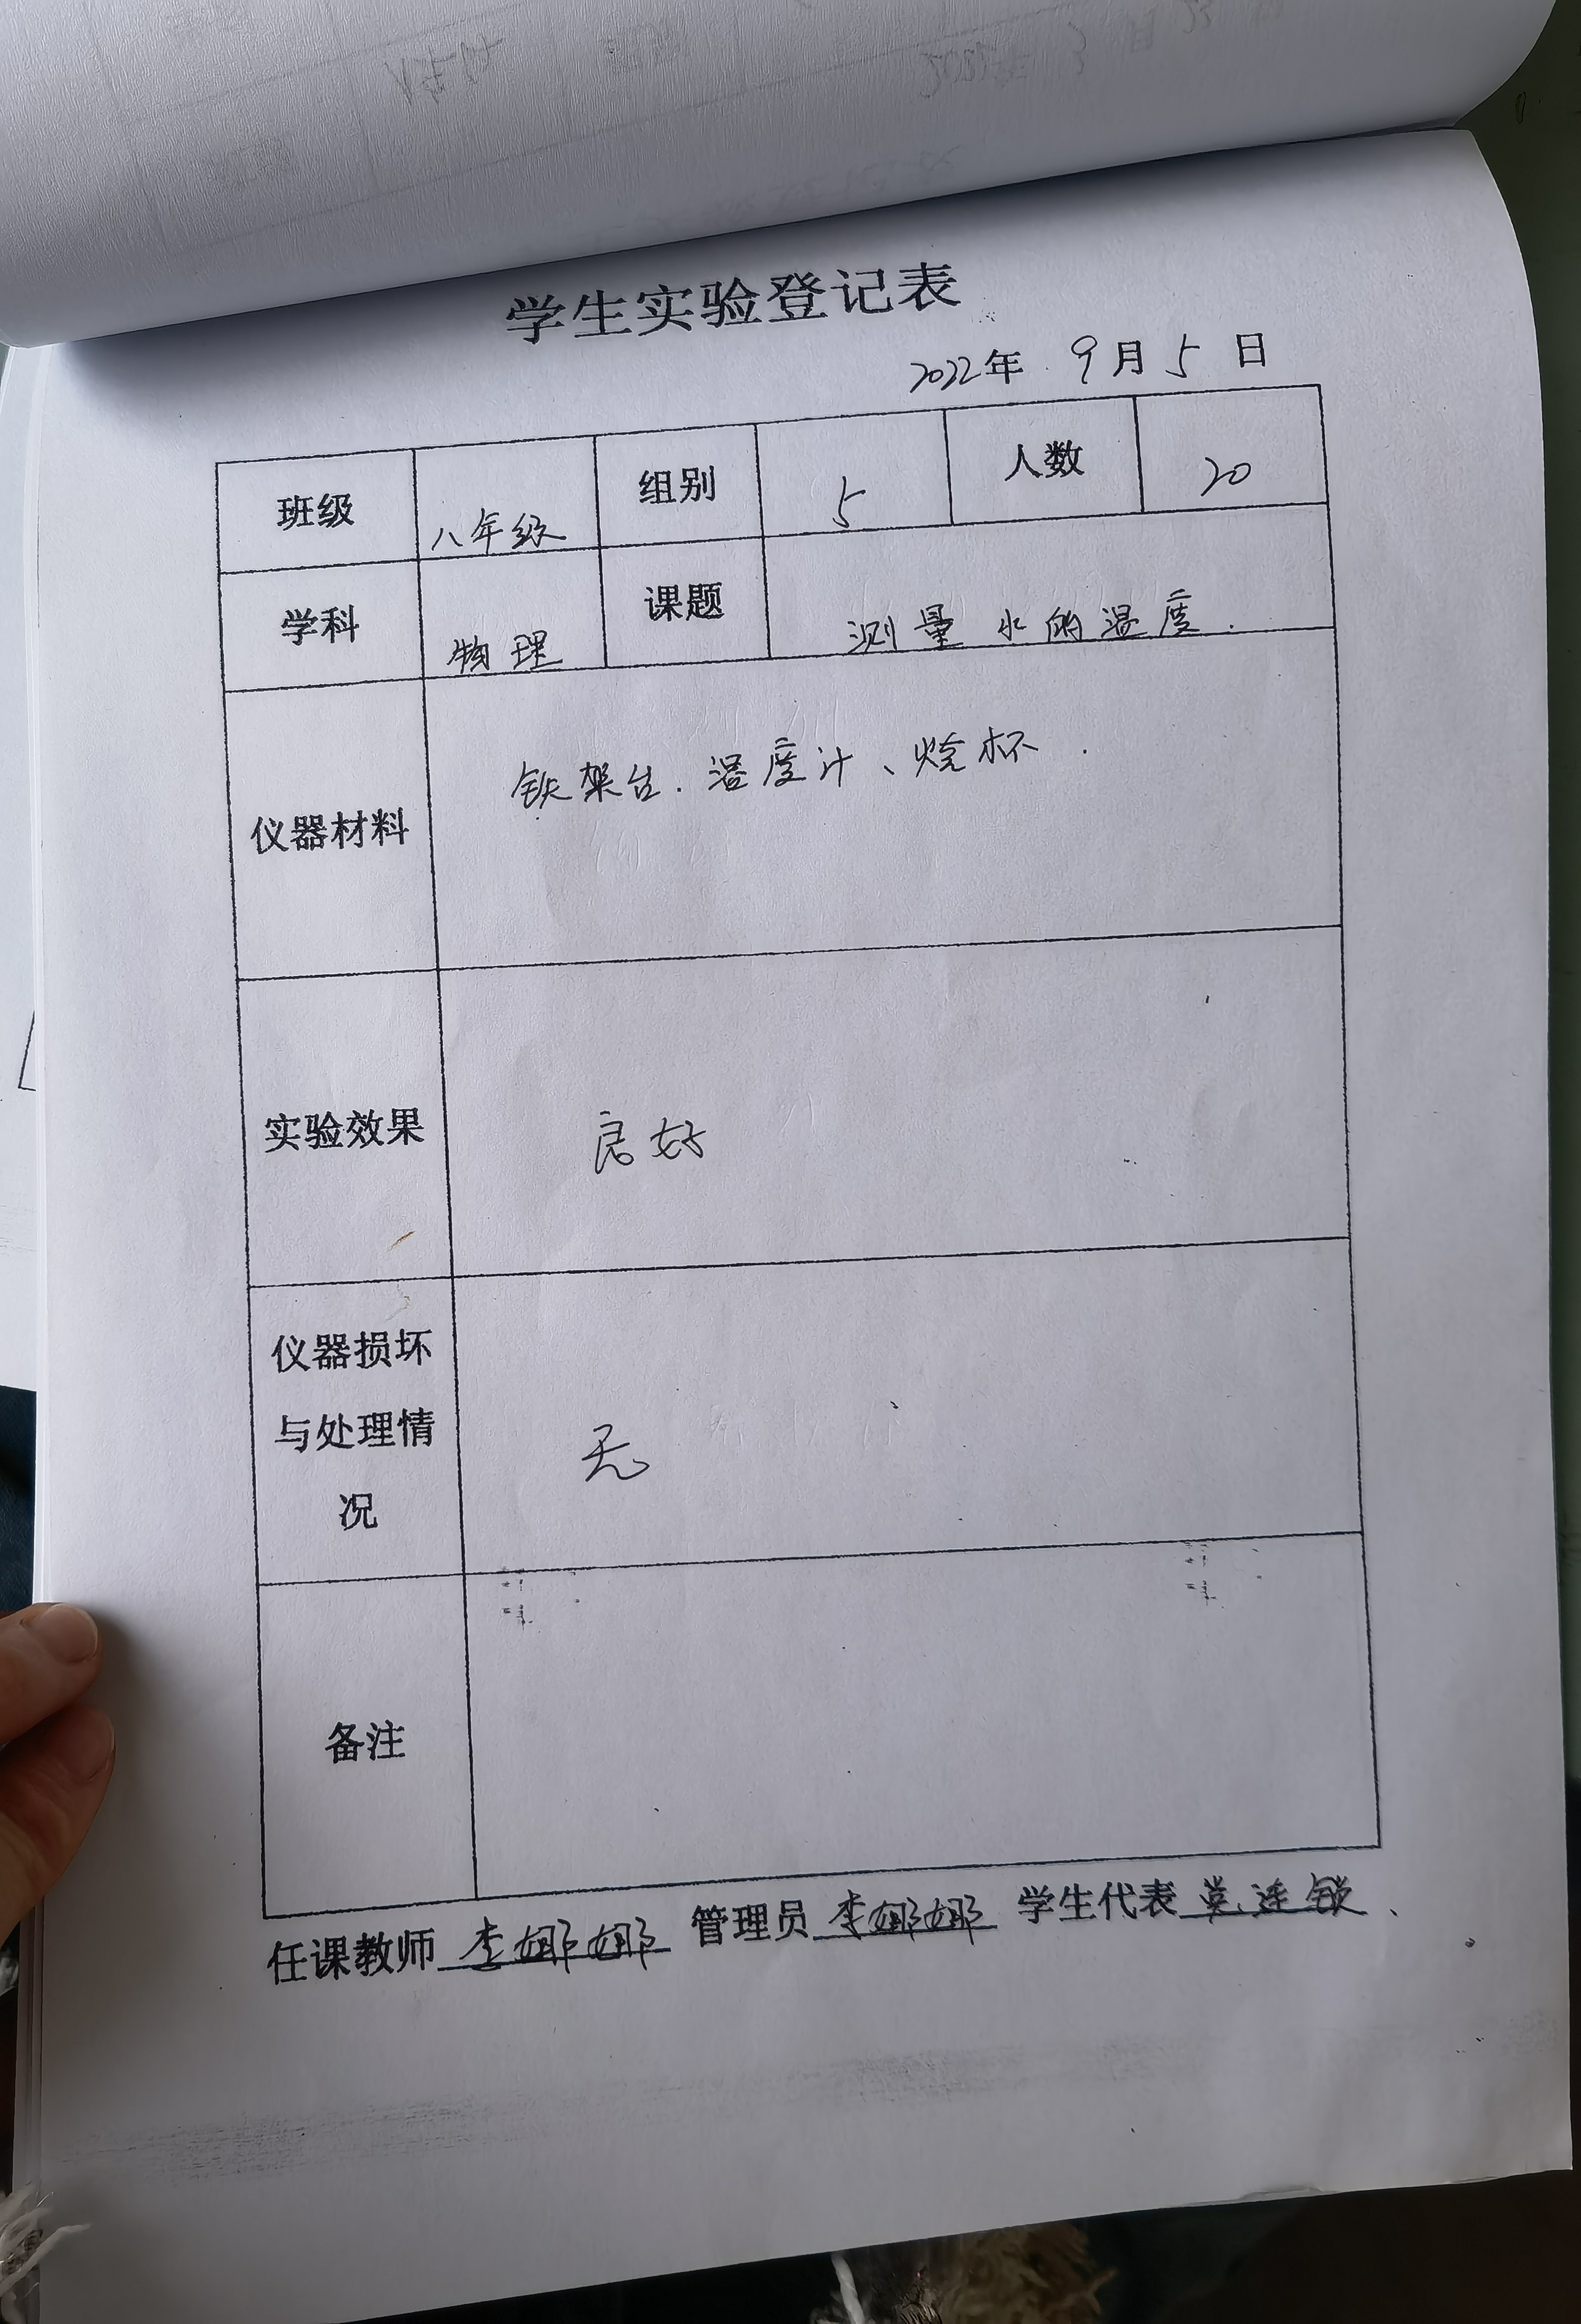 学生实验登记表
2022年 9月 5 日
班级 八年级 组别 5 人数 20
学科 物理 课题 测量水的温度.
仪器材料 铁架台.温度计、烧杯.
实验效果 良好
仪器损坏
与处理情
况
无
备注
任课教师 李娜娜 管理员 李娜娜 学生代表 连锁